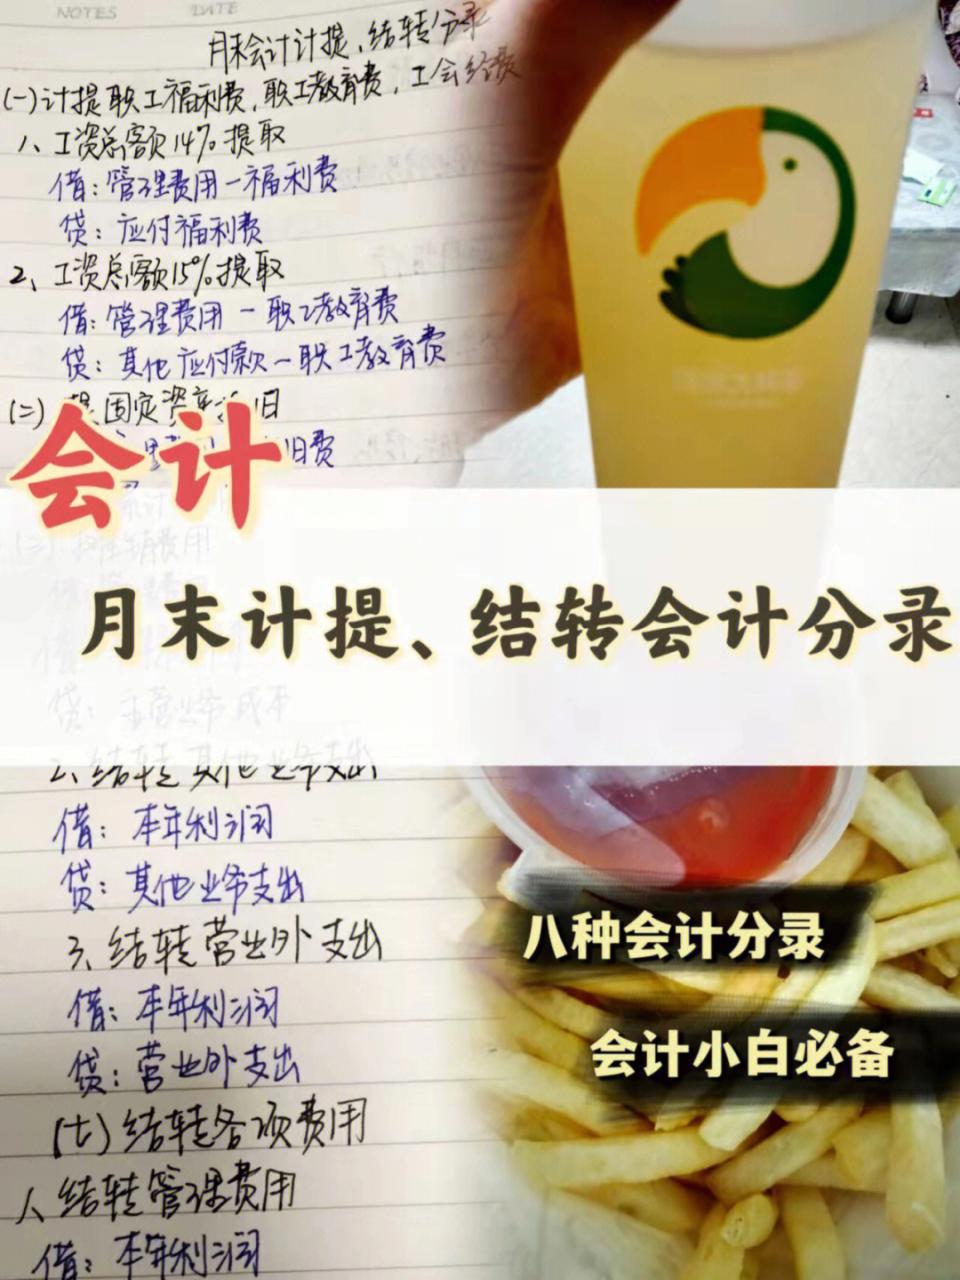 NOTES DATE
月末会计计提、结转分录
(一)计提职工福利费,职工教育费,工会经费
1、工资总额14%提取
借:管理费用一福利费
贷:应付福利费
2、工资总额15%提取
借:管理费用一职工教育费
贷:其他应付款一职工教育费
(二) 提固定资产 旧
旧费
会计
(三) 摊销费用
月末计提、结转会计分录
贷:主营业务成本
2、结转其他业务支出
借:本年利润
贷:其他业务支出
3、结转营业外支出
借:本年利润
贷:营业外支出
(七)结转各项费用
1、结转管理费用
借:本年利润
八种会计分录
会计小白必备